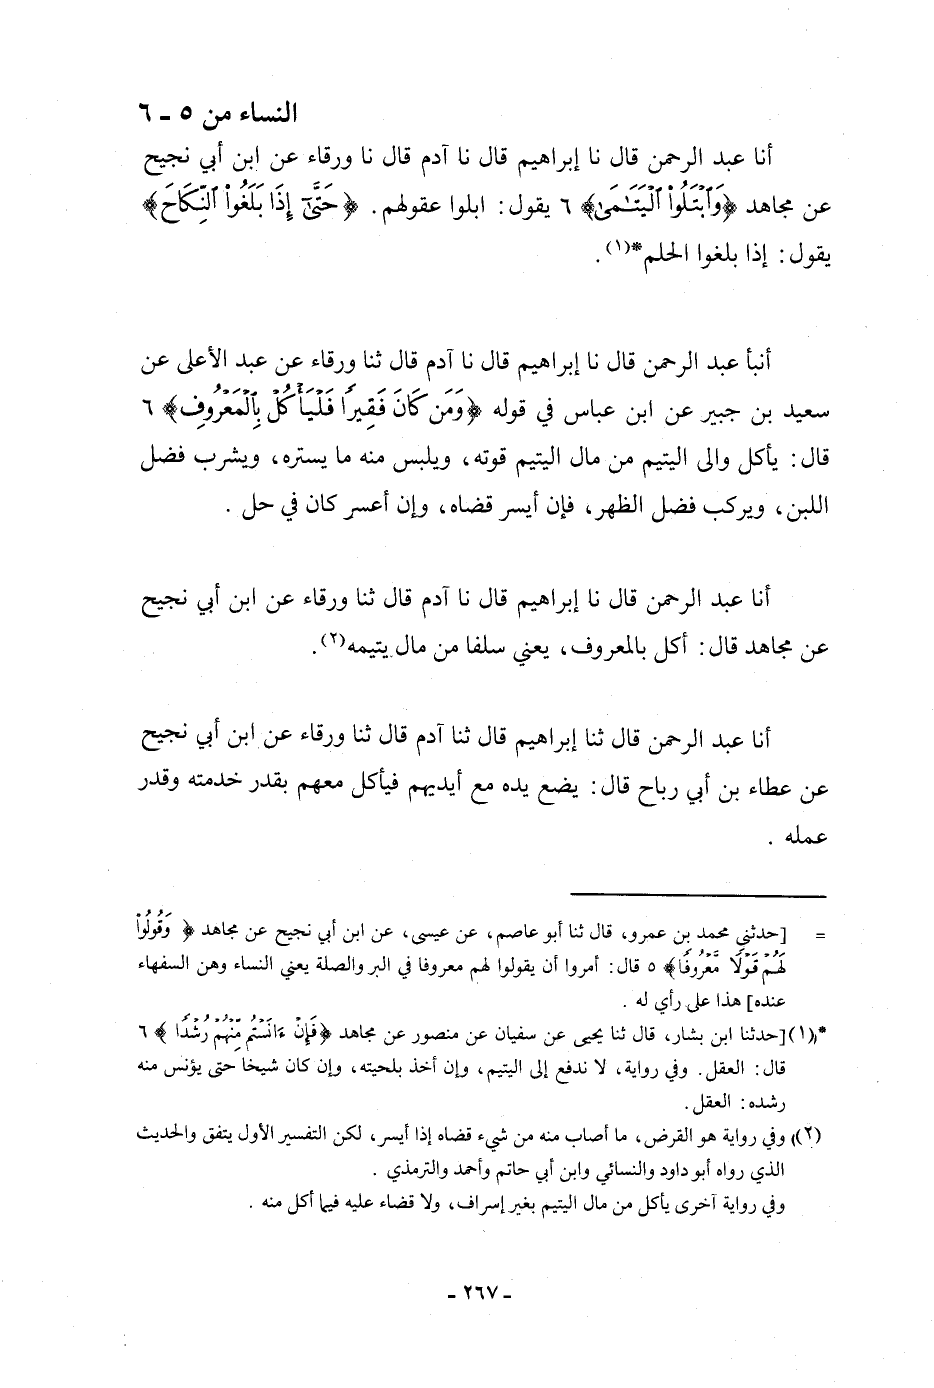 النساء من ٥ ـ ٦
أنا عبد الرحمن قال نا إبراهيم قال نا آدم قال نا ورقاء عن ابن أبي نجيح
عن مجاهد ﴿وَٱبْتَلُوا۟ ٱلْيَتَـٰمَىٰ﴾ ٦ يقول: ابلوا عقولهم. ﴿حَتَّىٰٓ إِذَا بَلَغُوا۟ ٱلنِّكَاحَ﴾
يقول: إذا بلغوا الحلم*(١).
أنبأ عبد الرحمن قال نا إبراهيم قال نا آدم قال ثنا ورقاء عن عبد الأعلى عن
سعيد بن جبير عن ابن عباس في قوله ﴿وَمَن كَانَ فَقِيرًا فَلْيَأْكُلْ بِٱلْمَعْرُوفِ﴾ ٦
قال: يأكل والى اليتيم من مال اليتيم قوته، ويلبس منه ما يستره، ويشرب فضل
اللبن، ويركب فضل الظهر، فإن أيسر قضاه، وإن أعسر كان في حل .
أنا عبد الرحمن قال نا إبراهيم قال نا آدم قال ثنا ورقاء عن ابن أبي نجيح
عن مجاهد قال: أكل بالمعروف، يعني سلفا من مال يتيمه(٢).
أنا عبد الرحمن قال ثنا إبراهيم قال ثنا آدم قال ثنا ورقاء عن ابن أبي نجيح
عن عطاء بن أبي رباح قال: يضع يده مع أيديهم فيأكل معهم بقدر خدمته وقدر
عمله .
= [حدثني محمد بن عمرو، قال ثنا أبو عاصم، عن عيسى، عن ابن أبي نجيح عن مجاهد ﴿ وَقُولُوا۟
لَهُمْ قَوْلًا مَّعْرُوفًا﴾ ٥ قال: أمروا أن يقولوا لهم معروفا في البر والصلة يعني النساء وهن السفهاء
عنده] هذا على رأي له .
*(١) [حدثنا ابن بشار، قال ثنا يحيى عن سفيان عن منصور عن مجاهد ﴿فَإِنْ ءَانَسْتُم مِّنْهُمْ رُشْدًا ﴾ ٦
قال: العقل. وفي رواية، لا ندفع إلى اليتيم، وإن أخذ بلحيته، وإن كان شيخا حتى يؤنس منه
رشده: العقل.
(٢) وفي رواية هو القرض، ما أصاب منه من شيء قضاه إذا أيسر، لكن التفسير الأول يتفق والحديث
الذي رواه أبو داود والنسائي وابن أبي حاتم وأحمد والترمذي .
وفي رواية آخرى يأكل من مال اليتيم بغير إسراف، ولا قضاء عليه فيما أكل منه .
ـ ٢٦٧ ـ